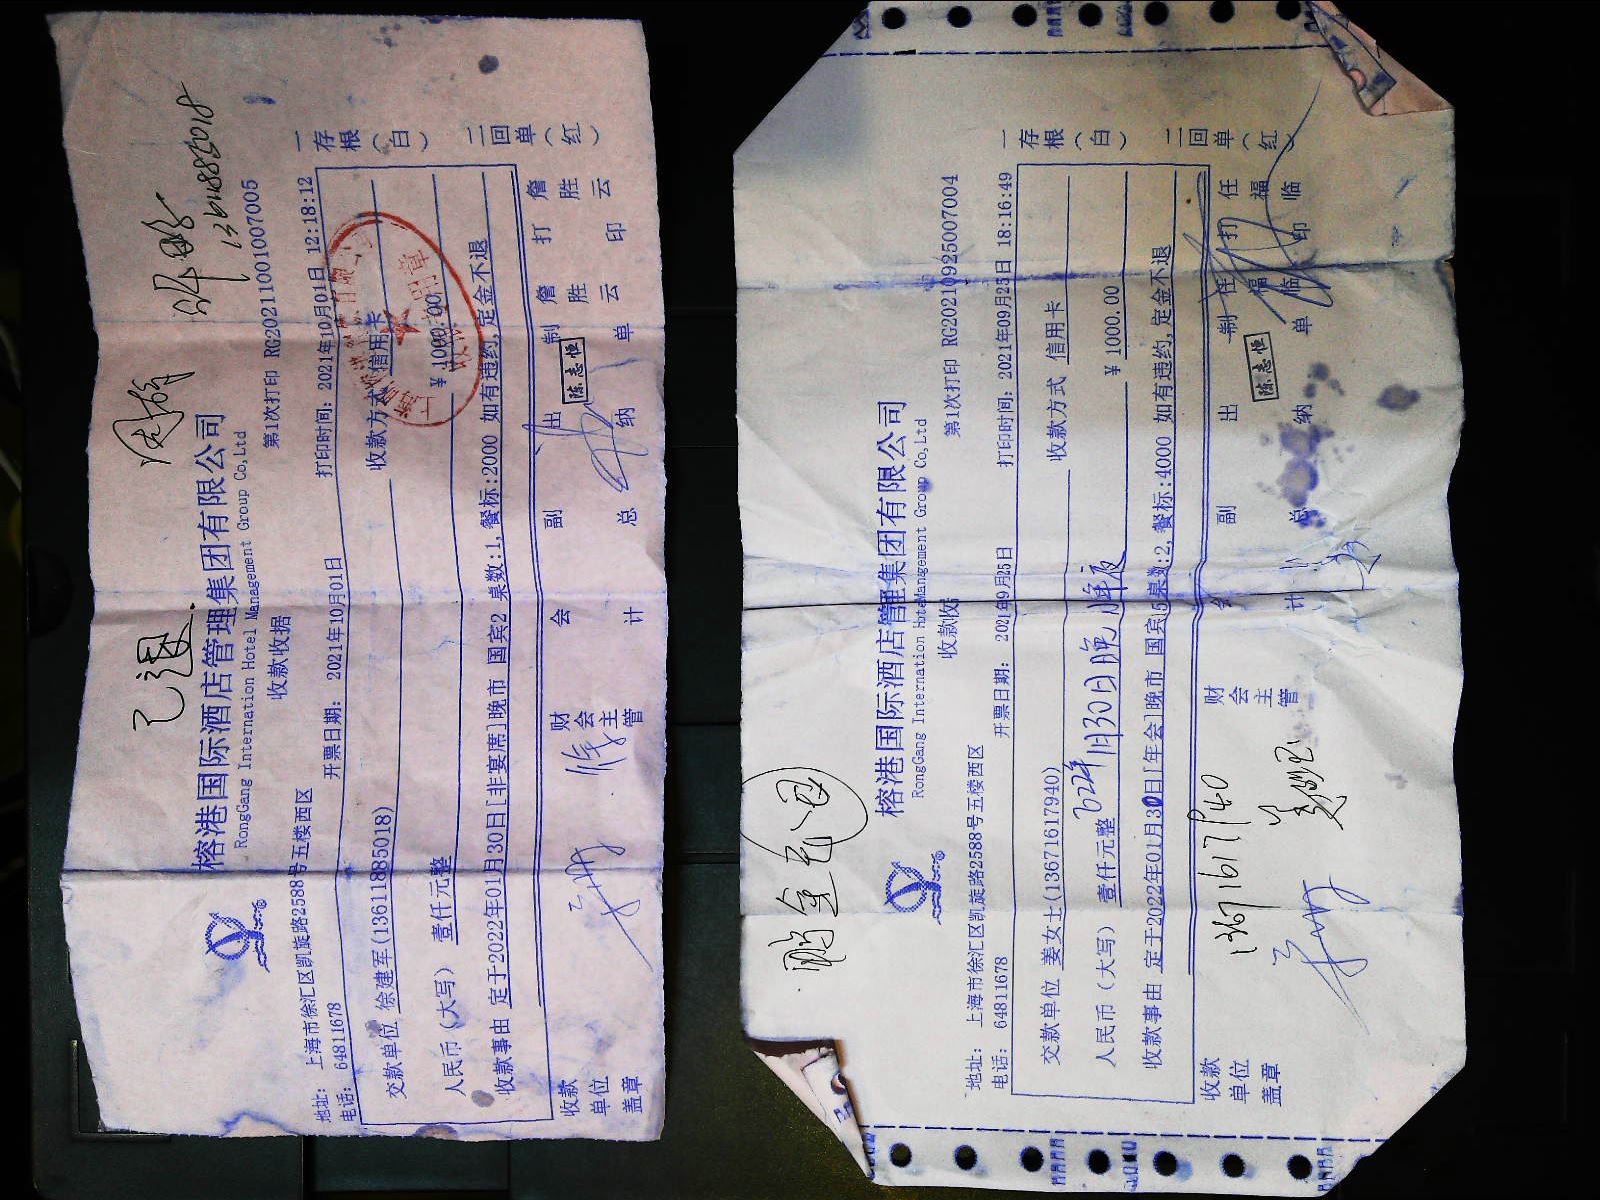 已退
榕港国际酒店管理集团有限公司
RongGang Internation Hotel Management Group Co,Ltd
收款收据
第1次打印 RG20211001007005
地址: 上海市徐汇区凯旋路2588号五楼西区
电话: 64811678
开票日期: 2021年10月01日
打印时间: 2021年10月01日 12:18:12
交款单位 徐建军(13611885018)
收款方式 信用卡
人民币(大写) 壹仟元整
¥ 1000.00
收款事由 定于2022年01月30日[非宴席]晚市 国宾2 桌数:1,餐标:2000 如有违约,定金不退
一存根(白)
二回单(红)
收款单位盖章
财会主管
会计
副总
出纳
陈志恒
制单 詹胜云
打印 詹胜云
13611885018
榕港国际酒店管理集团有限公司
RongGang Internation HoteManagement Group Co,Ltd
收款收
第1次打印 RG20210925007004
地址: 上海市徐汇区凯旋路2588号五楼西区
电话: 64811678
开票日期: 2021年9月25日
打印时间: 2021年09月25日 18:16:49
交款单位 姜女士(13671617940)
收款方式 信用卡
人民币(大写) 壹仟元整
¥ 1000.00
1月30日晚
收款事由 定于2022年01月30日[年会]晚市 国宾5桌数:2,餐标:4000 如有违约,定金不退
一存根(白)
二回单(红)
收款单位盖章
财会主管
会计
副总
出纳
陈志恒
制单 任福临
打印 任福临